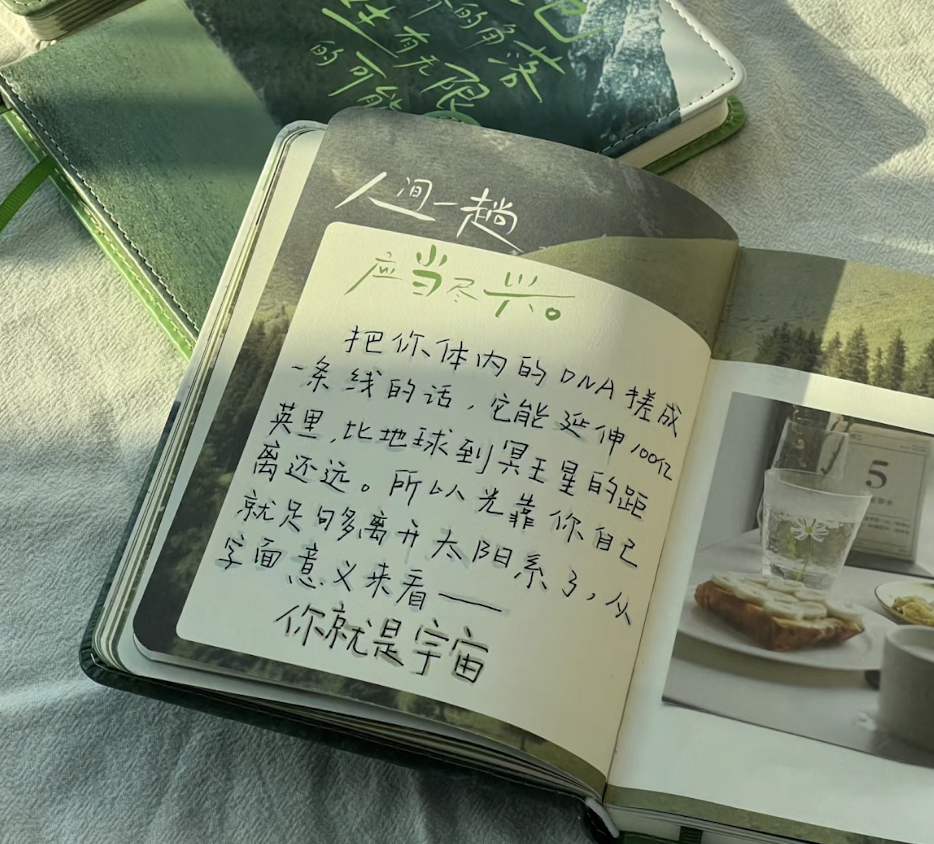 的角落
生有无限
的可能
人间一趟
应当尽兴。
把你体内的DNA搓成
一条线的话，它能延伸100亿
英里，比地球到冥王星的距
离还远。所以光靠你自己
就足够离开太阳系了，从
字面意义来看——
你就是宇宙
5